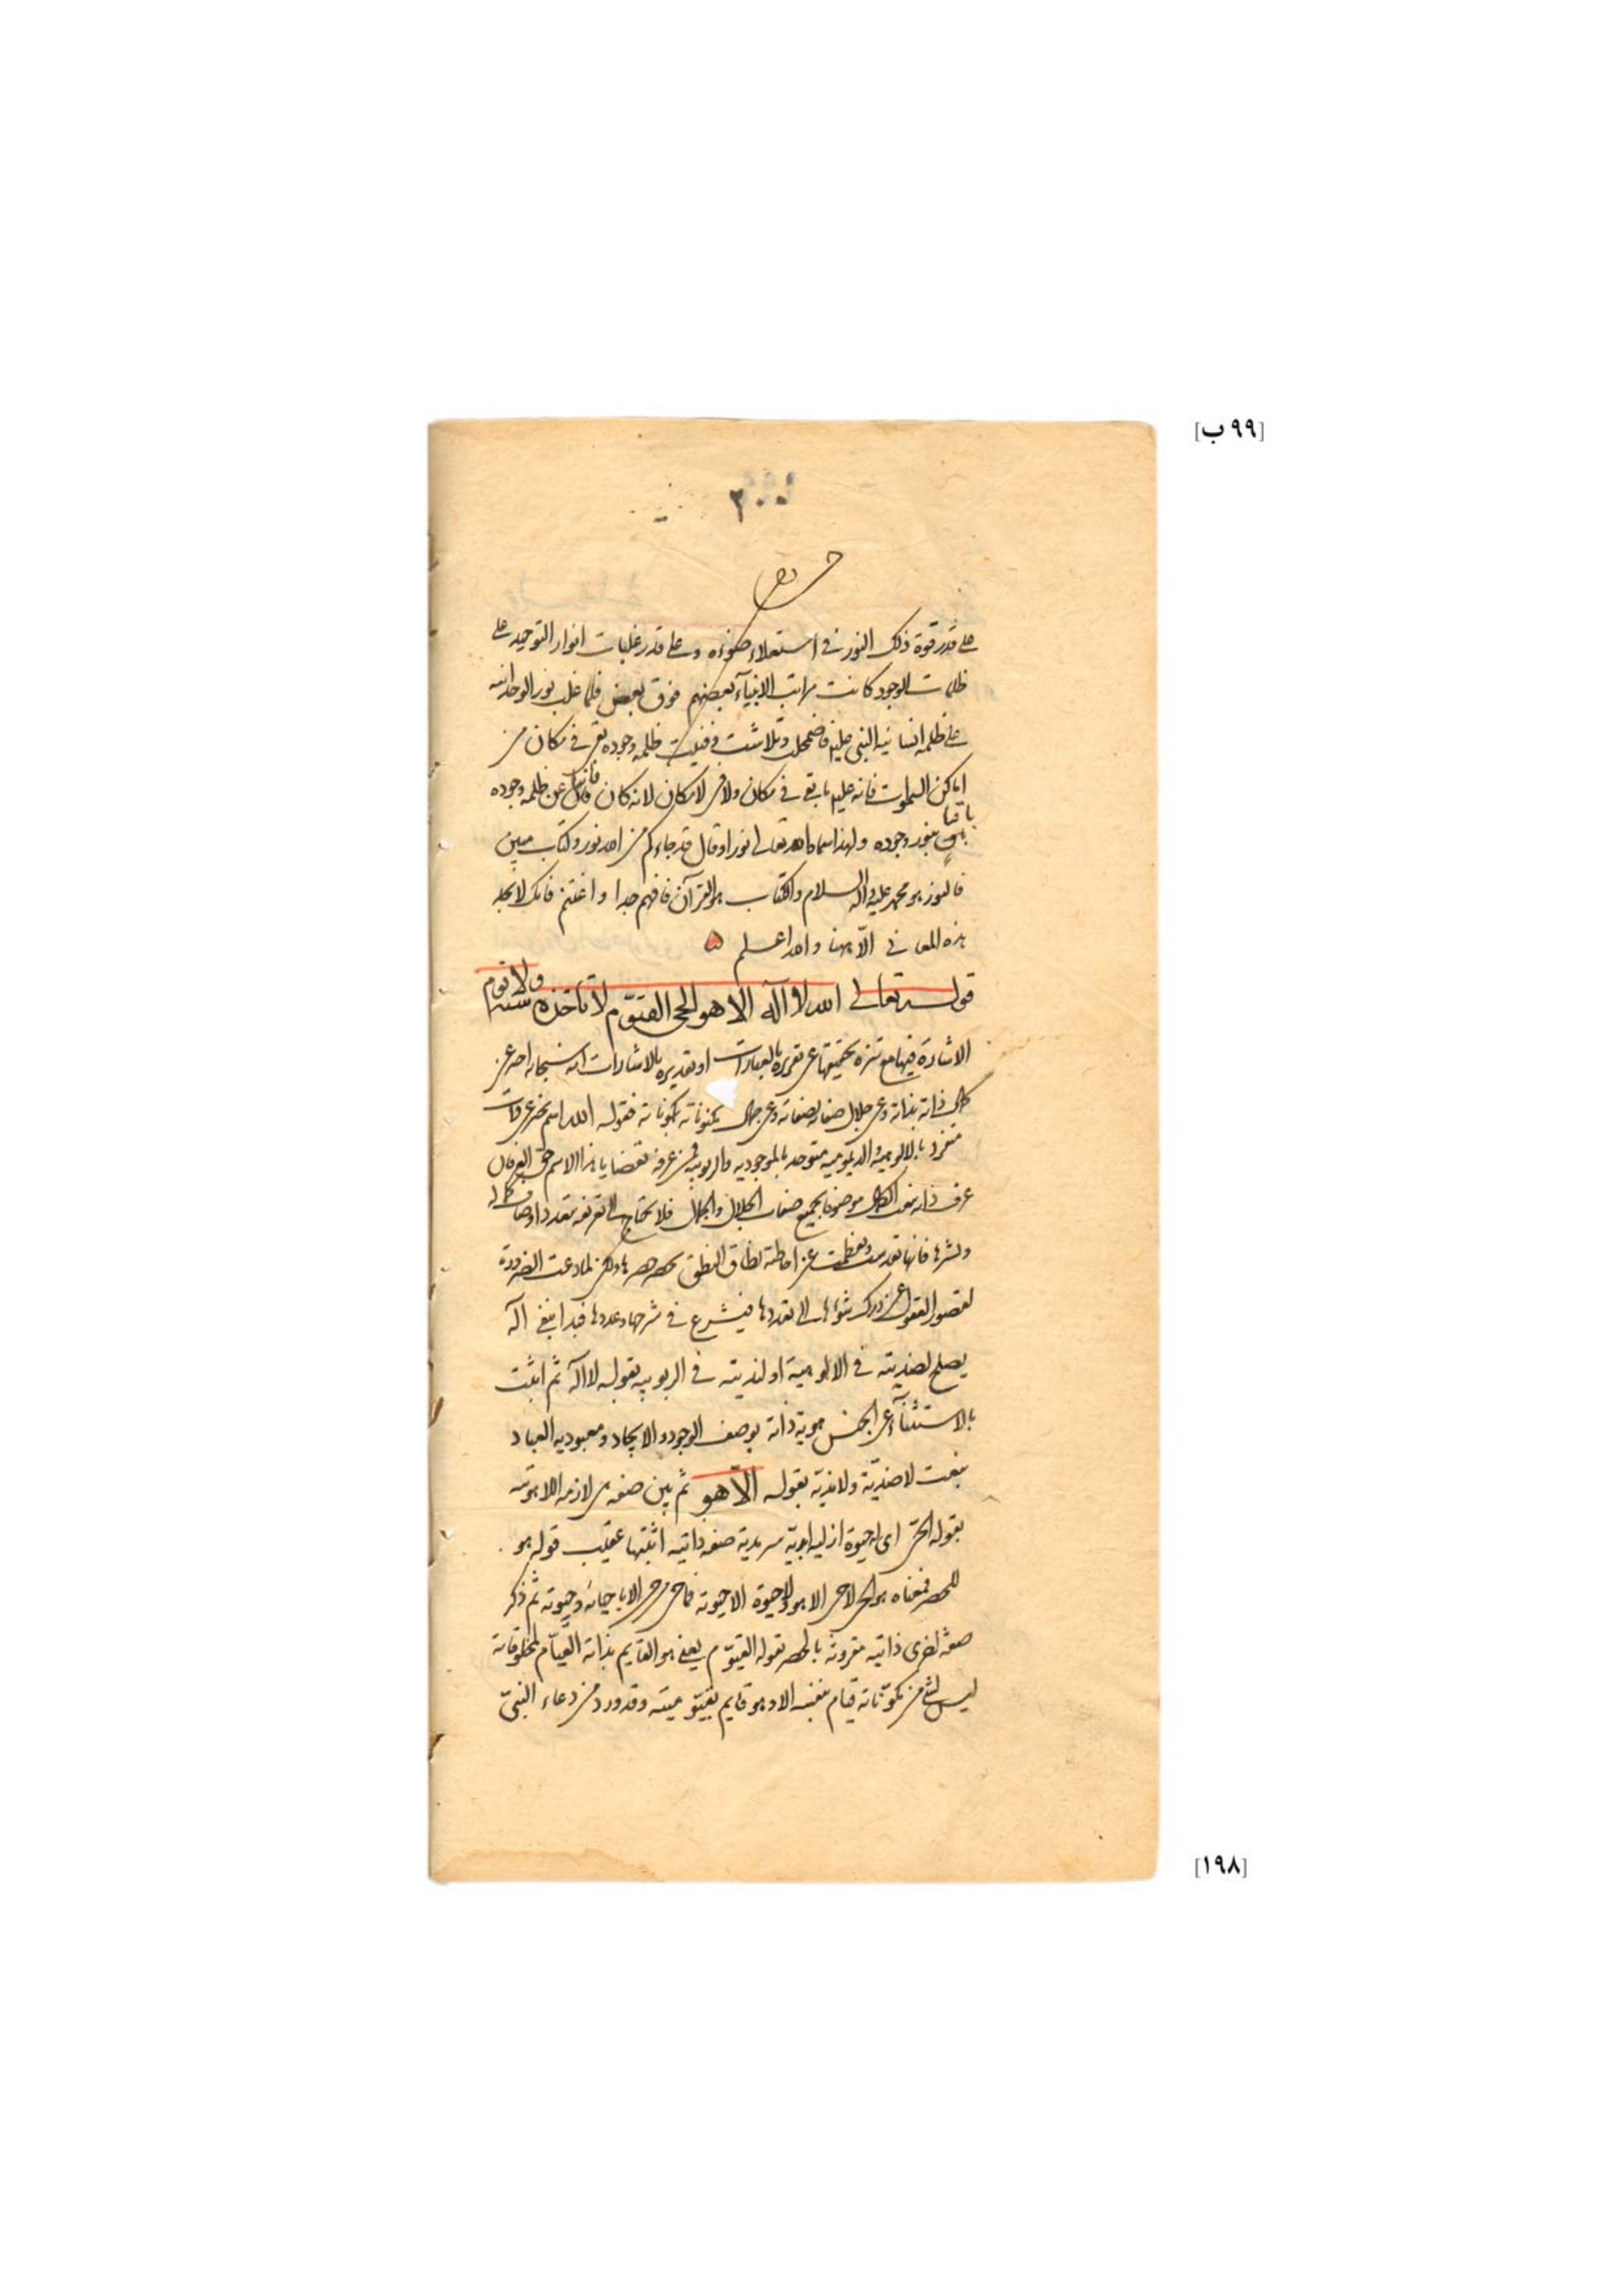 [٩٩ ب]
٢٠٠
على قدر قوة ذلك النور في استعلاء ضوءه وعلى قدر غلبات انوار التوحيد على
ظلمات الوجود كانت مراتب الانبياء بعضهم فوق بعض فلما غلب نور الوحدانية
على ظلمة انسانية النبي عليه فاضمحل وتلاشت وفنيت ظلمة وجوده بقى في مكان من
اماكن السموات فانه عليه ما بقى في مكان ولا في لامكان لانه كان فانيا عن ظلمة وجوده
باقيا بنور وجوده ولهذا سماه الله تعالى نورا وقال قد جاءكم من الله نور وكتاب مبين
فالنور هو محمد عليه واله السلام والكتاب هو القرآن فافهم جدا واغتنم فانك لا تجد
هذه المعاني الا ههنا والله اعلم
قوله تعالى الله لا اله الا هو الحي القيوم لا تأخذه سنة ولا نوم
الاشارة فيها مع تنزه تحقيقها عن تقريره بالعبارات او تقديره بالاشارات انه سبحانه اخبر عن
كمال ذاته بذاته وعن جلال صفاته بصفاته وعن جمال مكنوناته بمكوناته فقوله الله اسم مخبر عن ذات
متفرد بالالوهية والديمومية متوحد بالموجودية والربوبية فمن عرفه بقضايا هذا الاسم حق العرفان
عرف ذاته بنعت الكمال موصوفا بجميع صفات الجلال والجمال فلا يحتاج الى تعريفه بتعدد اوصاف كماله
ونشرها فانها تقدست وتعظمت عن احاطة نطاق النطق بحصرها ولكن لما دعت الضرورة
لقصور العقول عن درك شؤنها الى تعددها فيشرع في شرحها وعددها فبدا بنفي اله
يصلح لضديته في الالوهية او لنديته في الربوبية بقوله لا اله ثم اثبت
بالاستثناء عن الجنس هوية ذاته بوصف الوجود والايجاد ومعبودية العباد
بنعت لا ضدية ولا ندية بقوله الا هو ثم بين صفة من لازمة اللاهوتية
بقوله الحي اى له حيوة ازلية ابدية سرمدية صفة ذاتية اثبتها عقيب قوله هو
للحصر فمعناه هو الحي لا حي الا هو ولا حيوة الا حيوته فما من حي الا باحيائه وحيوته ثم ذكر
صفة اخرى ذاتية مقرونة بالحصر بقوله القيوم يعني هو القايم بذاته القيام لمخلوقاته
ليس لشئ من مكوناته قيام بنفسه الا وهو قايم بقيوميته وقد ورد من دعاء النبي
[١٩٨]